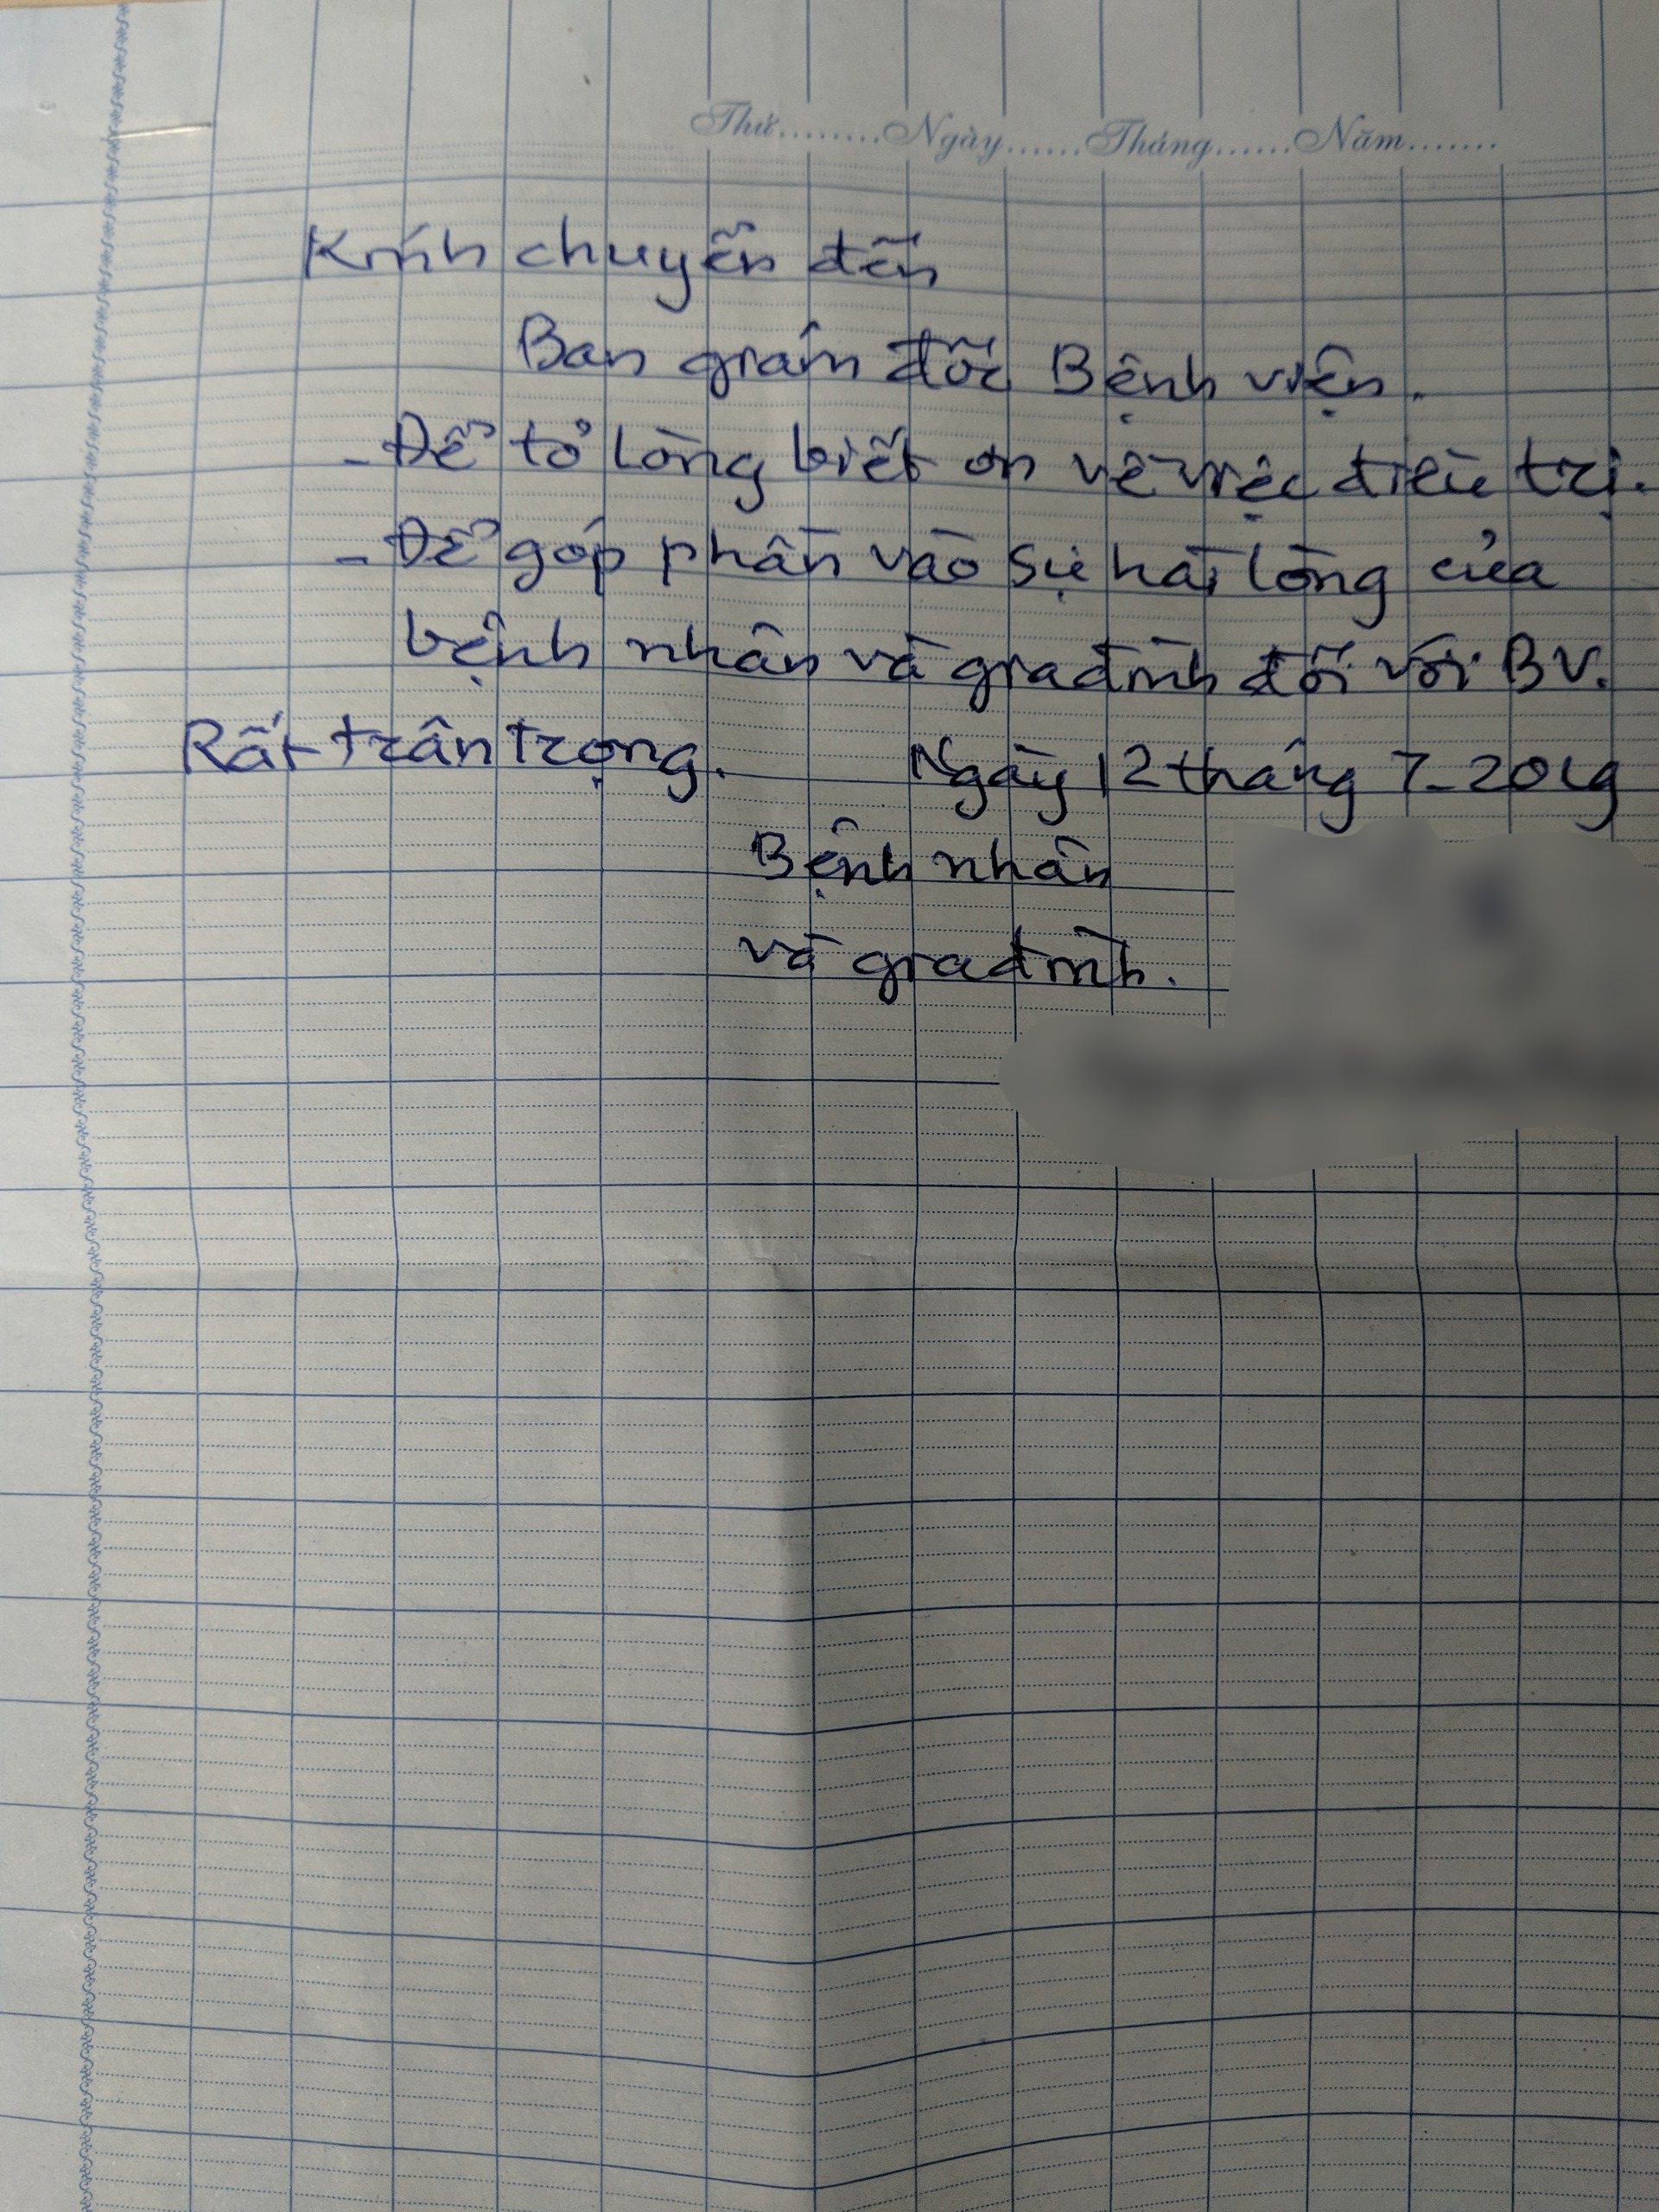 Thứ........Ngày......Tháng......Năm.......
Kính chuyển đến
Ban giám đốc Bệnh viện.
- Để tỏ lòng biết ơn về việc điều trị.
- Để góp phần vào sự hài lòng của
bệnh nhân và gia đình đối với BV.
Rất trân trọng. Ngày 12 tháng 7-2019
Bệnh nhân
và gia đình.